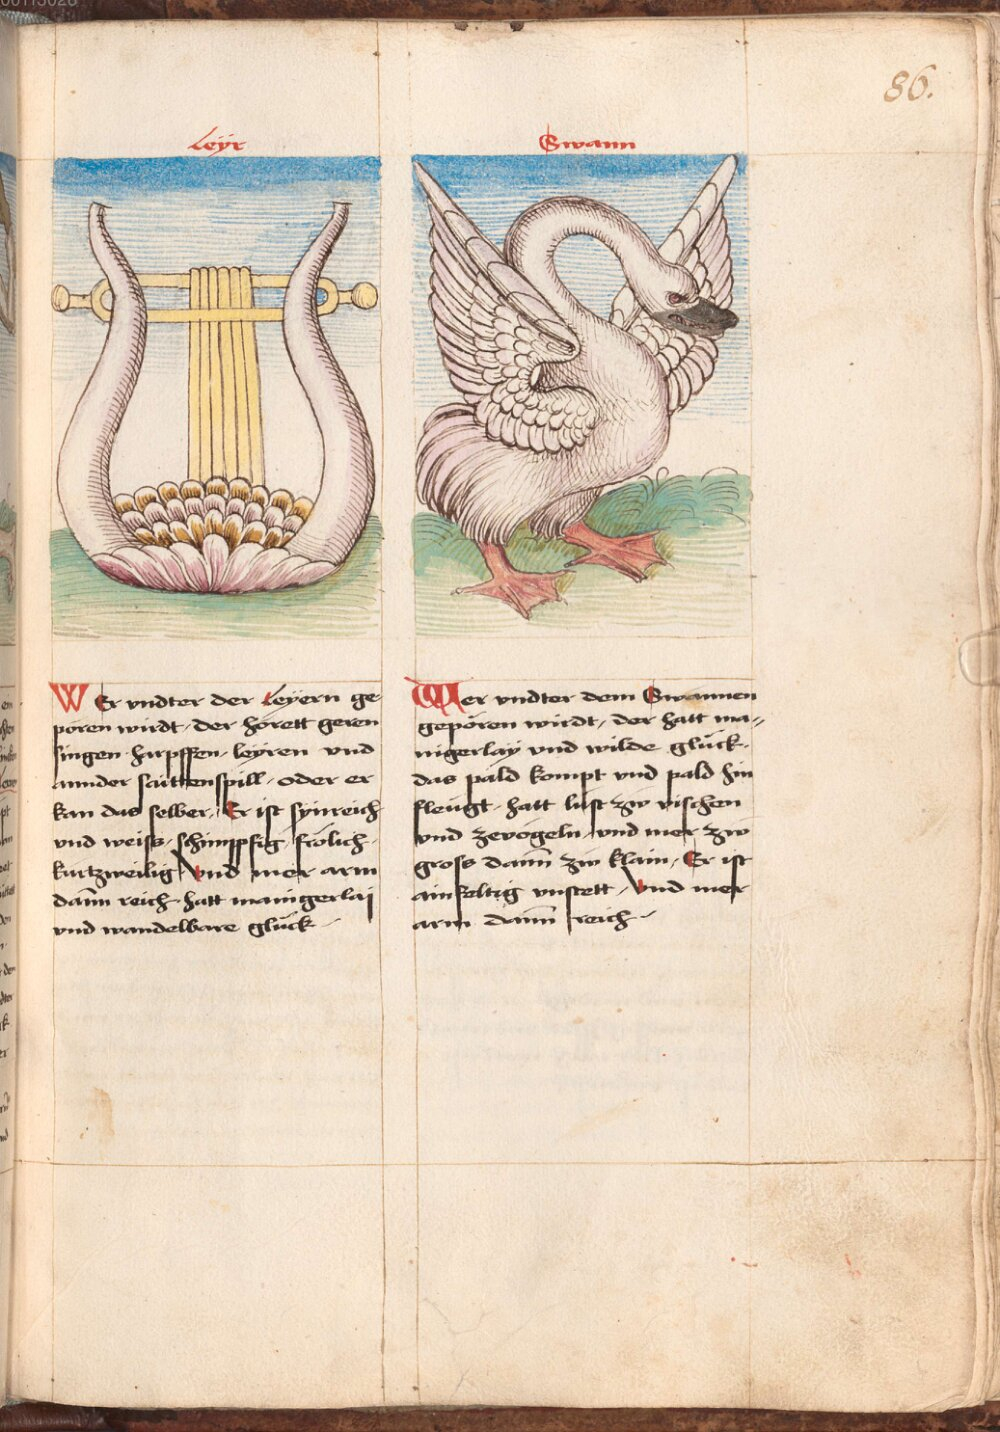 00113028
86.
Leÿr
WEr vndter der Leÿern ge-
poren wirdt · der hörett geren
singen · harpffen · leÿren vnd
annder saittenspill · oder er
kan das selber · Er ist sÿnreich
vnd weiss · schimpffig · frölich ·
kurtzweilig Vnd mer arm
dann reich · hatt manigerlaj
vnd wandelbare glück ·
Swann
Wer vndter dem Swannen
gepören wirdt · der hatt ma-
nigerlaÿ vnd wilde glück ·
das pald kompt vnd pald hin
fleugt · hatt lust zw vischen
vnd zevögeln · vnd mer zw
gross dann zw klain · Er ist
ainfeltig vnstett · Vnd mer
arm dann reich ·